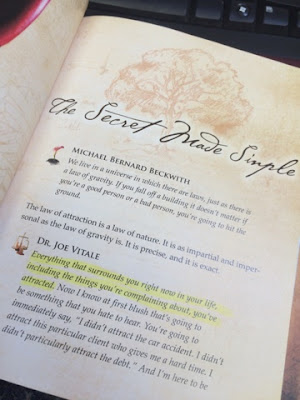 The Secret Made Simple
MICHAEL BERNARD BECKWITH
We live in a universe in which there are laws, just as there is
a law of gravity. If you fall off a building it doesn't matter if
you're a good person or a bad person, you're going to hit the
ground.
The law of attraction is a law of nature. It is as impartial and imper-
sonal as the law of gravity is. It is precise, and it is exact.
DR. JOE VITALE
Everything that surrounds you right now in your life,
including the things you're complaining about, you've
attracted. Now I know at first blush that's going to
be something that you hate to hear. You're going to
immediately say, "I didn't attract the car accident. I didn't
attract this particular client who gives me a hard time. I
didn't particularly attract the debt." And I'm here to be